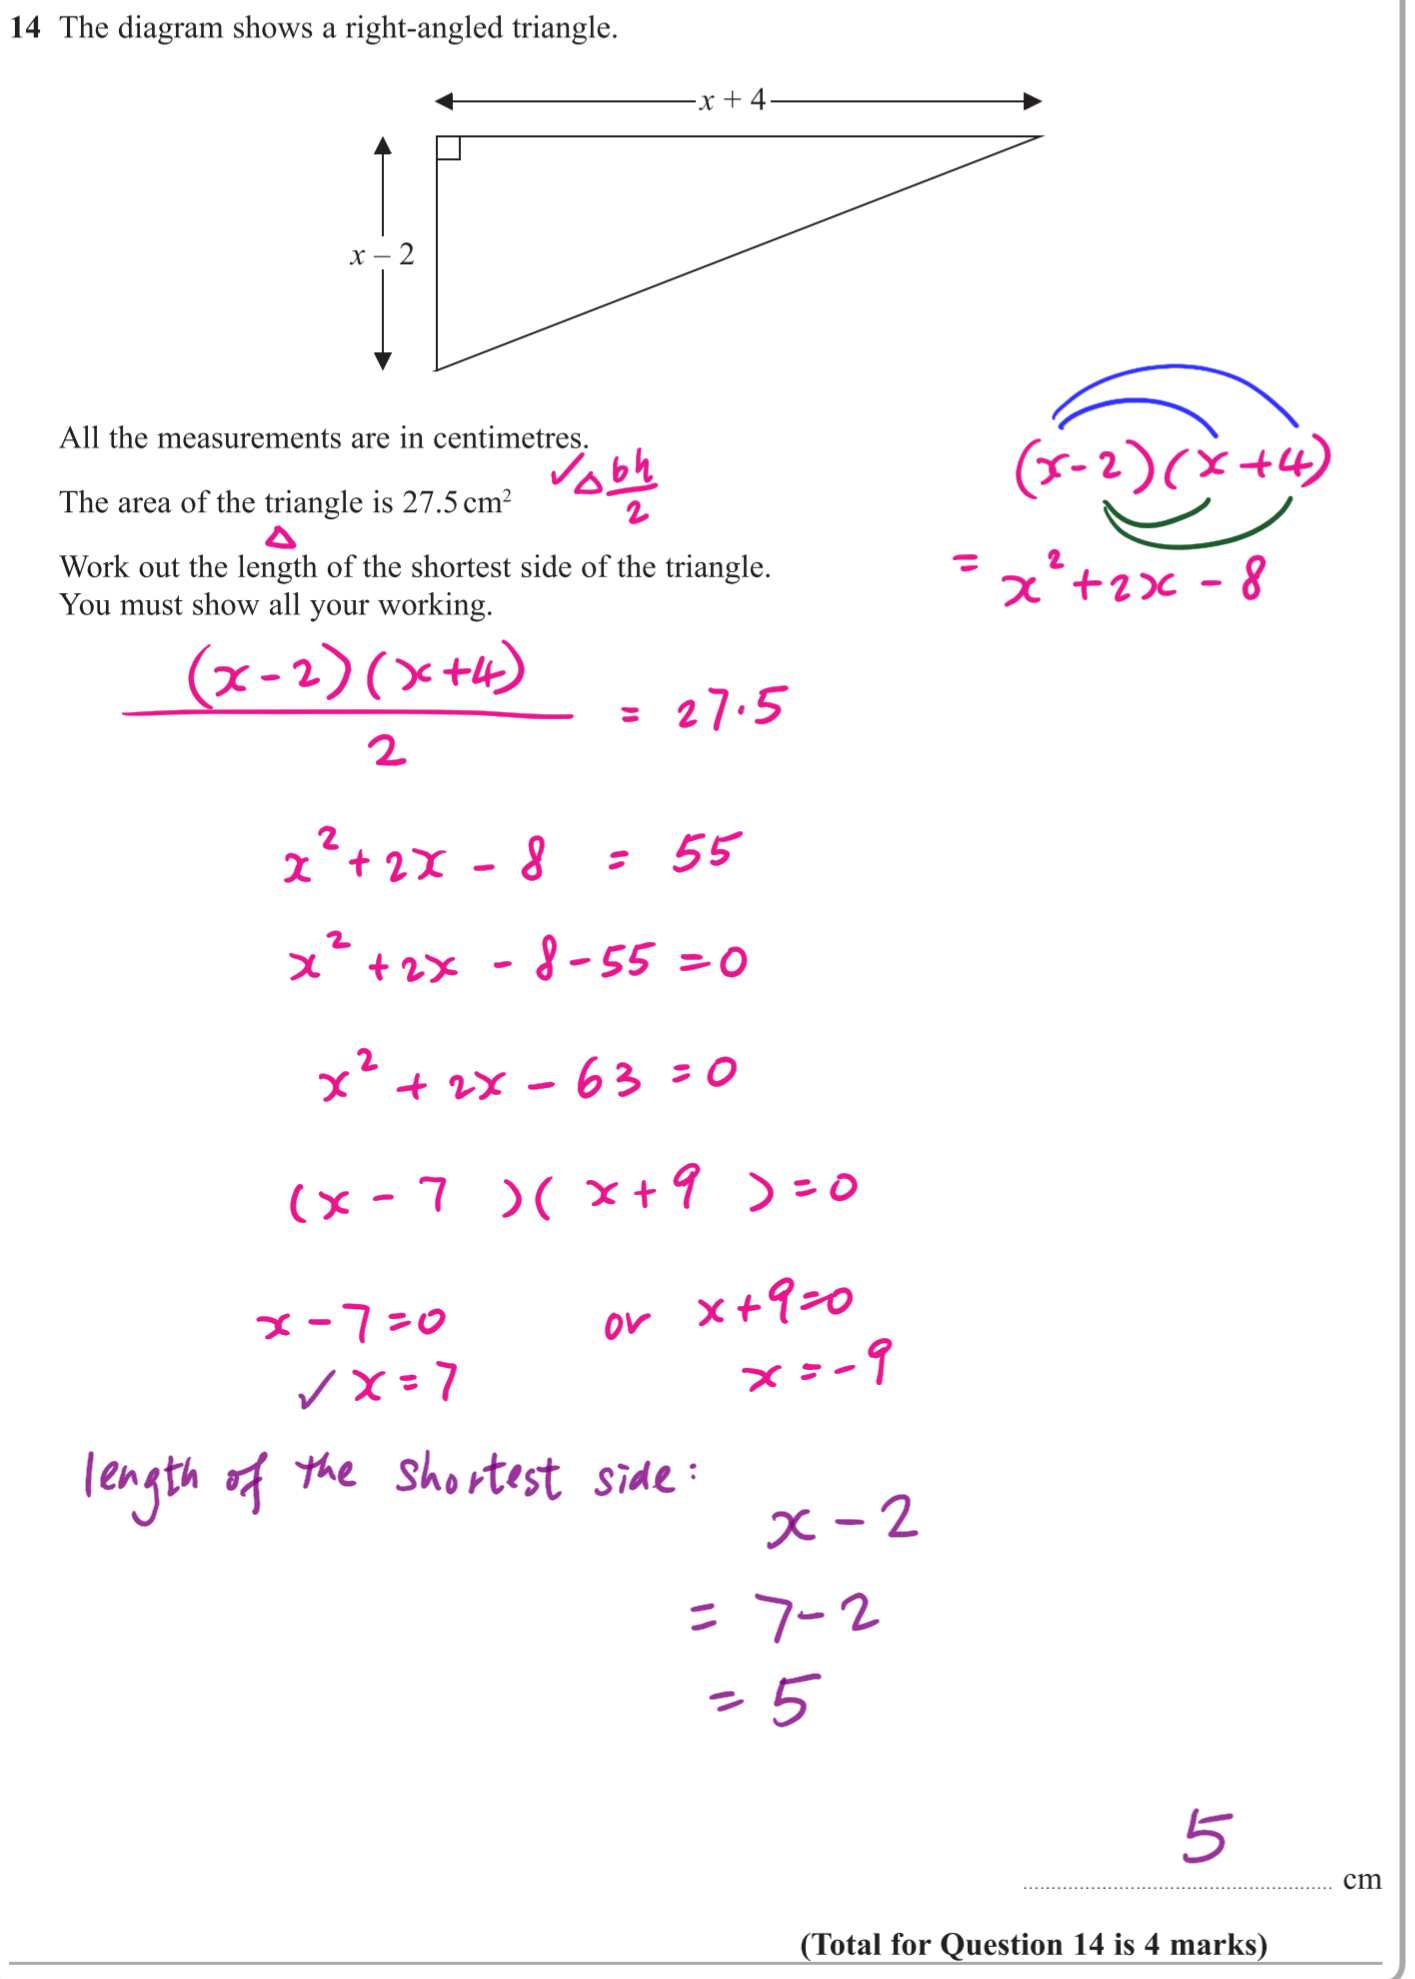 14 The diagram shows a right-angled triangle.
x + 4
x – 2
All the measurements are in centimetres.
✓ △ bh/2
The area of the triangle is 27.5 cm²
△
Work out the length of the shortest side of the triangle.
You must show all your working.
(x-2)(x+4)
= x²+2x-8
(x-2)(x+4)
2
= 27.5
x²+2x-8 = 55
x²+2x-8-55=0
x²+2x-63=0
(x-7)(x+9)=0
x-7=0 or x+9=0
✓ x=7 x=-9
length of the shortest side:
x-2
= 7-2
= 5
5
cm
(Total for Question 14 is 4 marks)